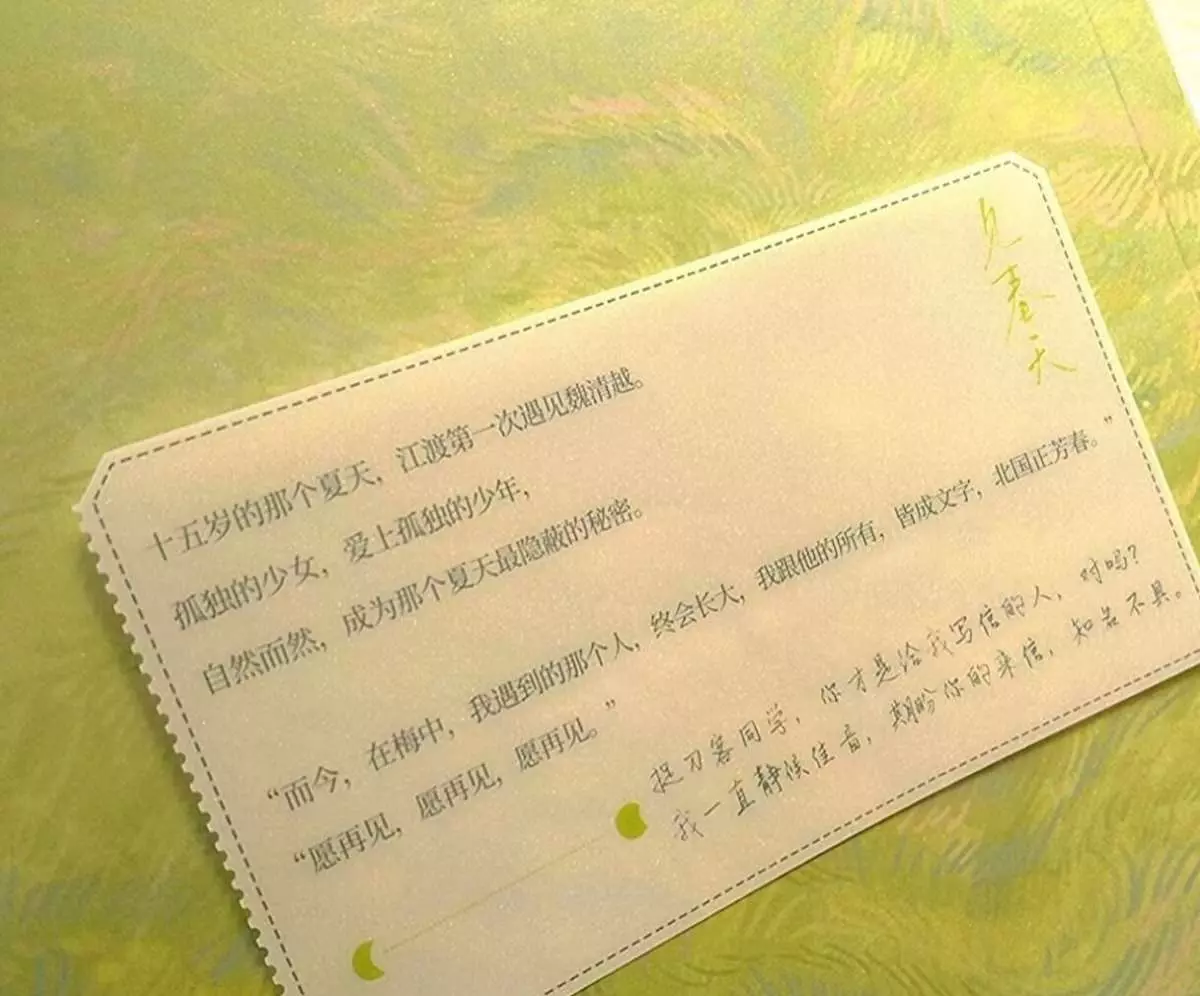 见春天
十五岁的那个夏天，江渡第一次遇见魏清越。
孤独的少女，爱上孤独的少年，
自然而然，成为那个夏天最隐蔽的秘密。
“而今，在梅中，我遇到的那个人，终会长大，我跟他的所有，皆成文字，北国正芳春。”
“愿再见，愿再见，愿再见。”
捉刀客同学，你才是给我写信的人，对吗？
我一直静候佳音，期盼你的来信，知名不具。